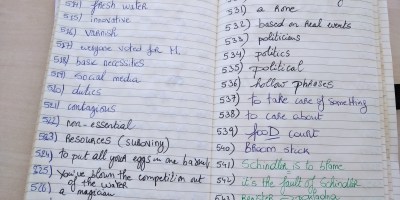 514) fresh water
515) innovative
516) varnish
517) everyone voted for H.
518) basic necessities
519) social media
520) duties
521) contagious
522) non-essential
523) Resources
524) to put all your eggs in one basket
525) you've blown the competition out
of the water
526) a magician
531) a
532) based on real events
533) politicians
534) politics
535) political
536) hollow phrases
537) to take care of something
538) to care about
539) food count
540) Broom stick
541) Schindler is to blame
542) it's the fault of Schindler
543)